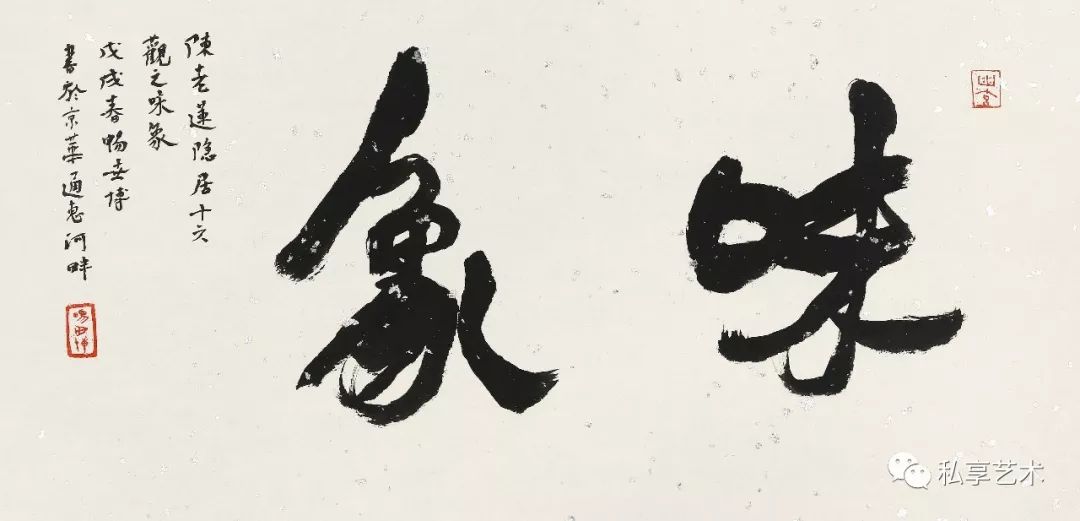 味象
陳老蓮隐居十六
觀之味象
戊戌春畅世博
書於京華通惠河畔
私享艺术